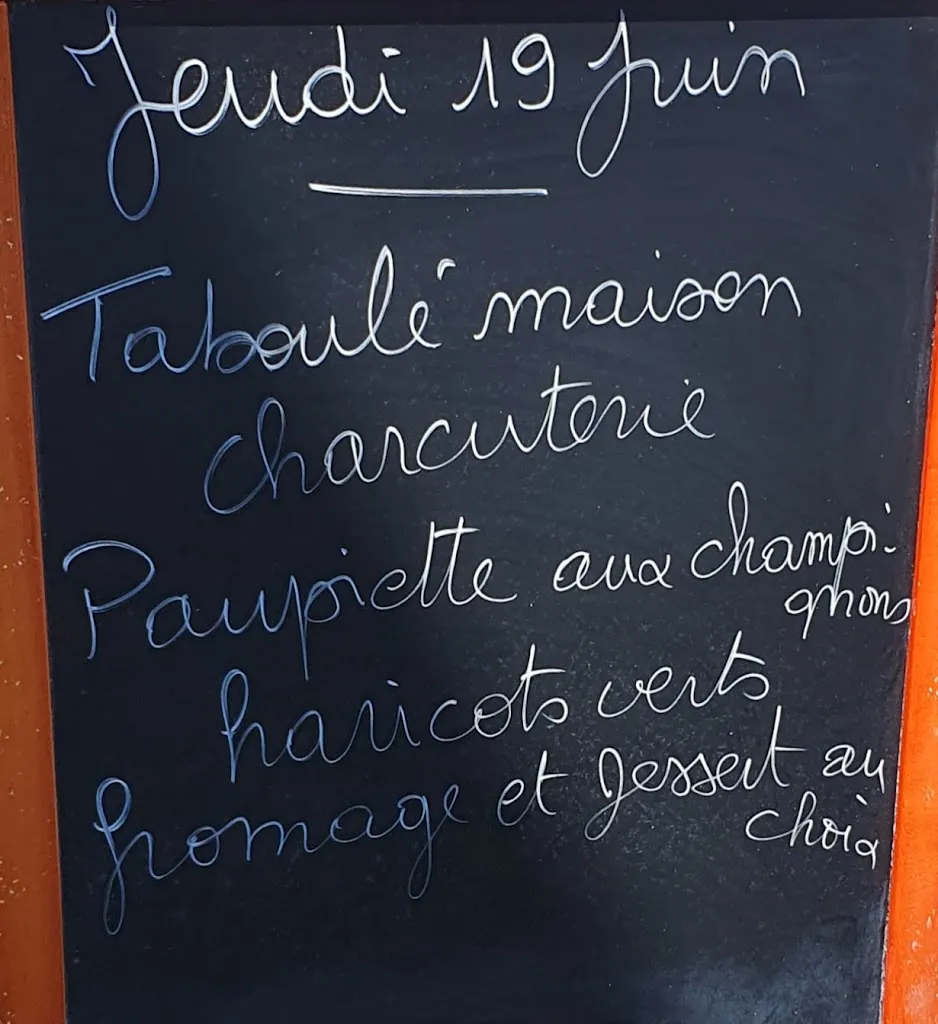 Jeudi 19 Juin
Taboulé maison
charcuterie
Paupiette aux champi-
gnons
haricots verts
fromage et dessert au
choix